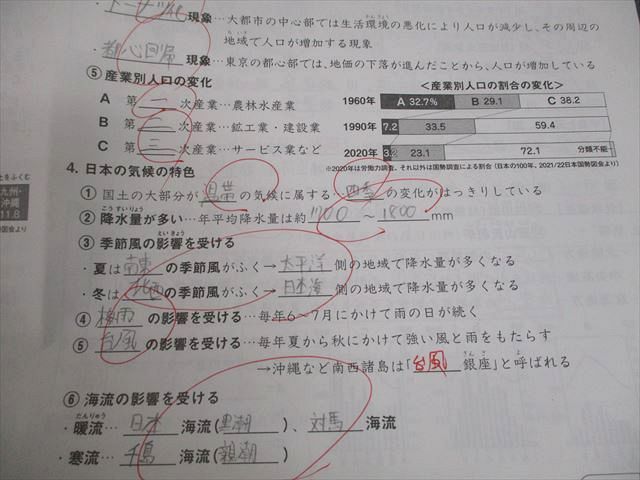 ドーナツ化 現象…大都市の中心部では生活環境の悪化により人口が減少し、その周辺の
地域で人口が増加する現象
・都心回帰 現象…東京の都心部では、地価の下落が進んだことから、人口が増加している
⑤ 産業別人口の変化
A 第 一 次産業…農林水産業
B 第 二 次産業…鉱工業・建設業
C 第 三 次産業…サービス業など
<産業別人口の割合の変化>
1960年 A 32.7% B 29.1 C 38.2
1990年 7.2 33.5 59.4
2020年 3 23.1 72.1 分類不能
※2020年は労働力調査、それ以外は国勢調査による割合(日本の100年、2021/22日本国勢図会より)
4. 日本の気候の特色
① 国土の大部分が 温帯 の気候に属する…四季 の変化がはっきりしている
② 降水量が多い…年平均降水量は約 1700 ～ 1800 mm
③ 季節風の影響を受ける
・夏は 南東 の季節風がふく→ 太平洋 側の地域で降水量が多くなる
・冬は 北西 の季節風がふく→ 日本海 側の地域で降水量が多くなる
④ 梅雨 の影響を受ける…毎年6～7月にかけて雨の日が続く
⑤ 台風 の影響を受ける…毎年夏から秋にかけて強い風と雨をもたらす
→沖縄など南西諸島は「台風 銀座」と呼ばれる
⑥ 海流の影響を受ける
・暖流… 日本 海流(黒潮)、対馬 海流
・寒流… 千島 海流(親潮)
土をふくむ
九州・
沖縄
11.8
勢図会より